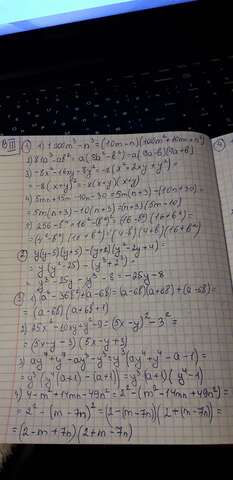 В III
① 1) 1000m³-n³=(10m-n)(100m²+10mn+n²)
2) 81a³-ab²=a(81a²-b²)=a(9a-b)(9a+b)
3) -8x²-16xy-8y²=-8(x²+2xy+y²)=
=-8(x+y)²=-8(x+y)(x+y)
4) 5mn+15m-10n-30=5m(n+3)-(10n+30)=
=5m(n+3)-10(n+3)=(n+3)(5m-10)
5) 256-b⁴=16²-(b²)²=(16-b²)(16+b²)=
=(4²-b²)(16+b²)=(4-b)(4+b)(16+b²)
② y(y-5)(y+5)-(y+2)(y²-2y+4)=
=y(y²-25)-(y³+2³)=
=y³-25y-y³-8=-25y-8
③ 1) a²-36b²+a-6b=(a-6b)(a+6b)+(a-6b)=
=(a-6b)(a+6b+1)
2) 25x²-10xy+y²-9=(5x-y)²-3²=
=(5x-y-3)(5x-y+3)
3) ay⁷+y⁷-ay³-y³=y³(ay⁴+y⁴-a-1)=
=y³(y⁴(a+1)-(a+1))=y³(a+1)(y⁴-1)
4) 4-m²+14mn-49n²=2²-(m²-14mn+49n²)=
=2²-(m-7n)²=(2-(m-7n))(2+(m-7n))=
=(2-m+7n)(2+m-7n)
④